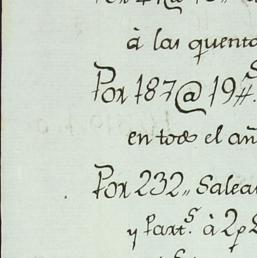 à las quento
Por 187@19#S
en todo el añ
Por 232,, Salea
y Part.s à 2p